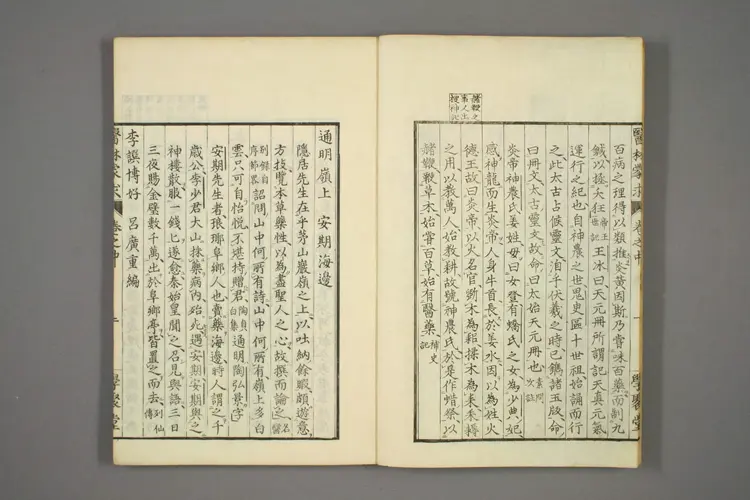 諸鞭之
事人出
搜神記
百病之理得以類推炎黃因斯乃嘗味百藥而制九
鍼以拯夭狂帝王世記王冰曰天元冊所謂記天真元氣
運行之紀也自神農之世鬼臾區十世祖始誦而行
之此太古占候靈文洎乎伏羲之時已鐫諸玉版命
曰冊文太古靈文故命曰太始天元冊也素問次註
炎帝神農氏姜姓母曰女登有蟜氏之女為少典妃
感神龍而生炎帝人身牛首長於姜水因以為姓火
德王故曰炎帝以火名官斲木為耜揉木為耒耒耨
之用以教萬人始教耕故號神農氏於是作蜡祭以
赭鞭鞭草木始嘗百草始有醫藥補史記
醫林蒙求 卷之中 一 學聚堂
通明嶺上 安期海邊
隱居先生在乎茅山巖嶺之上以吐納餘暇頗遊意
方技覽本草藥性以為盡聖人之心故撰而論之名醫
別錄自序節畧詔問山中何所有詩山中何所有嶺上多白
雲只可自怡悅不堪持贈君陶貞白集通明陶弘景字
安期先生者琅琊阜鄉人也賣藥海邊時人謂之千
歲公李少君大山採藥病困殆死遇安期安期與之
神樓散服一錢匕遂愈秦始皇聞之召見與語三日
三夜賜金璧數千萬出於阜鄉亭皆置之而去列仙傳
李譔博好 呂廣重編
醫林蒙求 卷之中 二 學聚堂